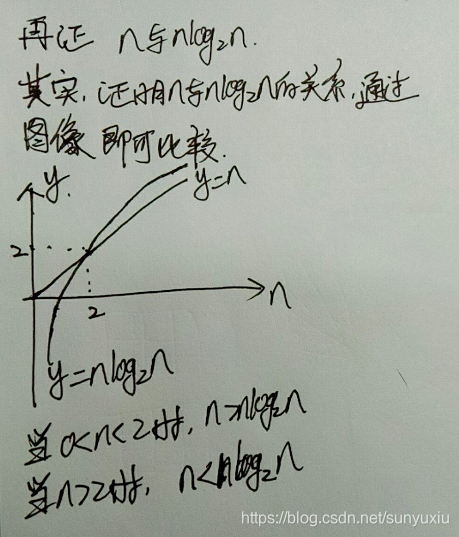 再证 n与nlog₂n.
其实,证明n与nlog₂n的关系,通过
图像 即可比较.
y
y=n
2
n
2
y=nlog₂n
当0<n<2时, n>nlog₂n
当n>2时, n<nlog₂n
https://blog.csdn.net/sunyuxiu